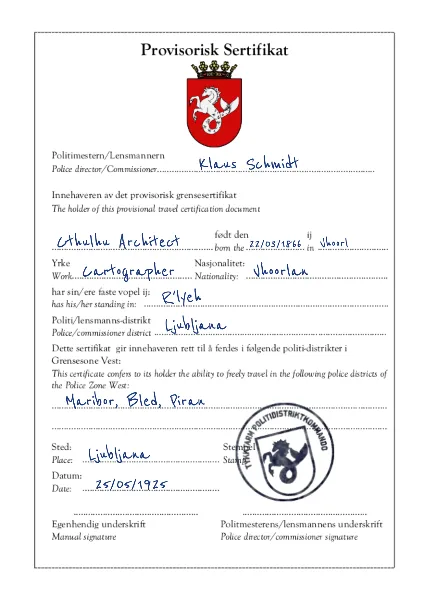 Provisorisk Sertifikat
Politimestern/Lensmannern
Police director/Commissioner Klaus Schmidt
Innehaveren av det provisorisk grensesertifikat
The holder of this provisional travel certification document
Cthulhu Architect født den 22/03/1866 ij Jhoorl
born the in
Yrke Cartographer Nasjonalitet: Jhoorlan
Work Nationality:
har sin/ere faste vopel ij: R'lyeh
has his/her standing in:
Politi/lensmanns-distrikt
Police/commissioner district Ljubljana
Dette sertifikat gir innehaveren rett til å ferdes i følgende politi-distrikter i
Grensesone Vest:
This certificate confers to its holder the ability to freely travel in the following police districts of
the Police Zone West:
Maribor, Bled, Piran
Sted: Ljubljana Stempel
Place: Stamp
POLITIDISTRIKTKOMMANDO
Datum:
Date: 25/05/1925
Egenhendig underskrift Politmesterens/lensmannens underskrift
Manual signature Police director/commissioner signature